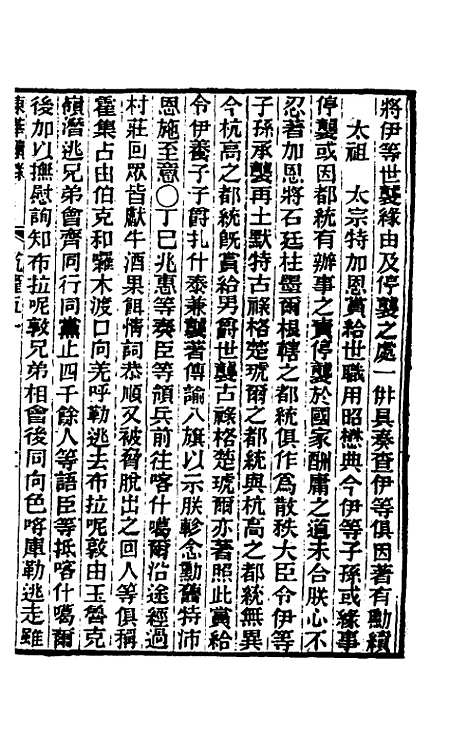 將伊等世襲緣由及停襲之處一併具奏查伊等俱因著有勳績
太祖　太宗特加恩賞給世職用昭懋典今伊等子孫或緣事
停襲或因都統有辦事之責停襲於國家酬庸之道未合朕心不
忍著加恩將石廷柱墨爾根轄之都統俱作為散秩大臣令伊等
子孫承襲再土默特古祿格楚琥爾之都統與杭高之都統無異
今杭高之都統既賞給男爵世襲古祿格楚琥爾亦著照此賞給
令伊養子子爵扎什泰兼襲著傳諭八旗以示朕軫念勳舊特沛
恩施至意〇丁巳兆惠等奏臣等領兵前往喀什噶爾沿途經過
村莊回眾皆獻牛酒果餌情詞恭順又被脅脫出之回人等俱稱
霍集占由伯克和囉木渡口向羌呼勒逃去布拉呢敦由玉魯克
嶺潛逃兄弟會齊同行同黨止四千餘人等語臣等抵喀什噶爾
後加以撫慰詢知布拉呢敦兄弟相會後同向色㗇庫勒逃走雖
東華續錄
乾隆五十